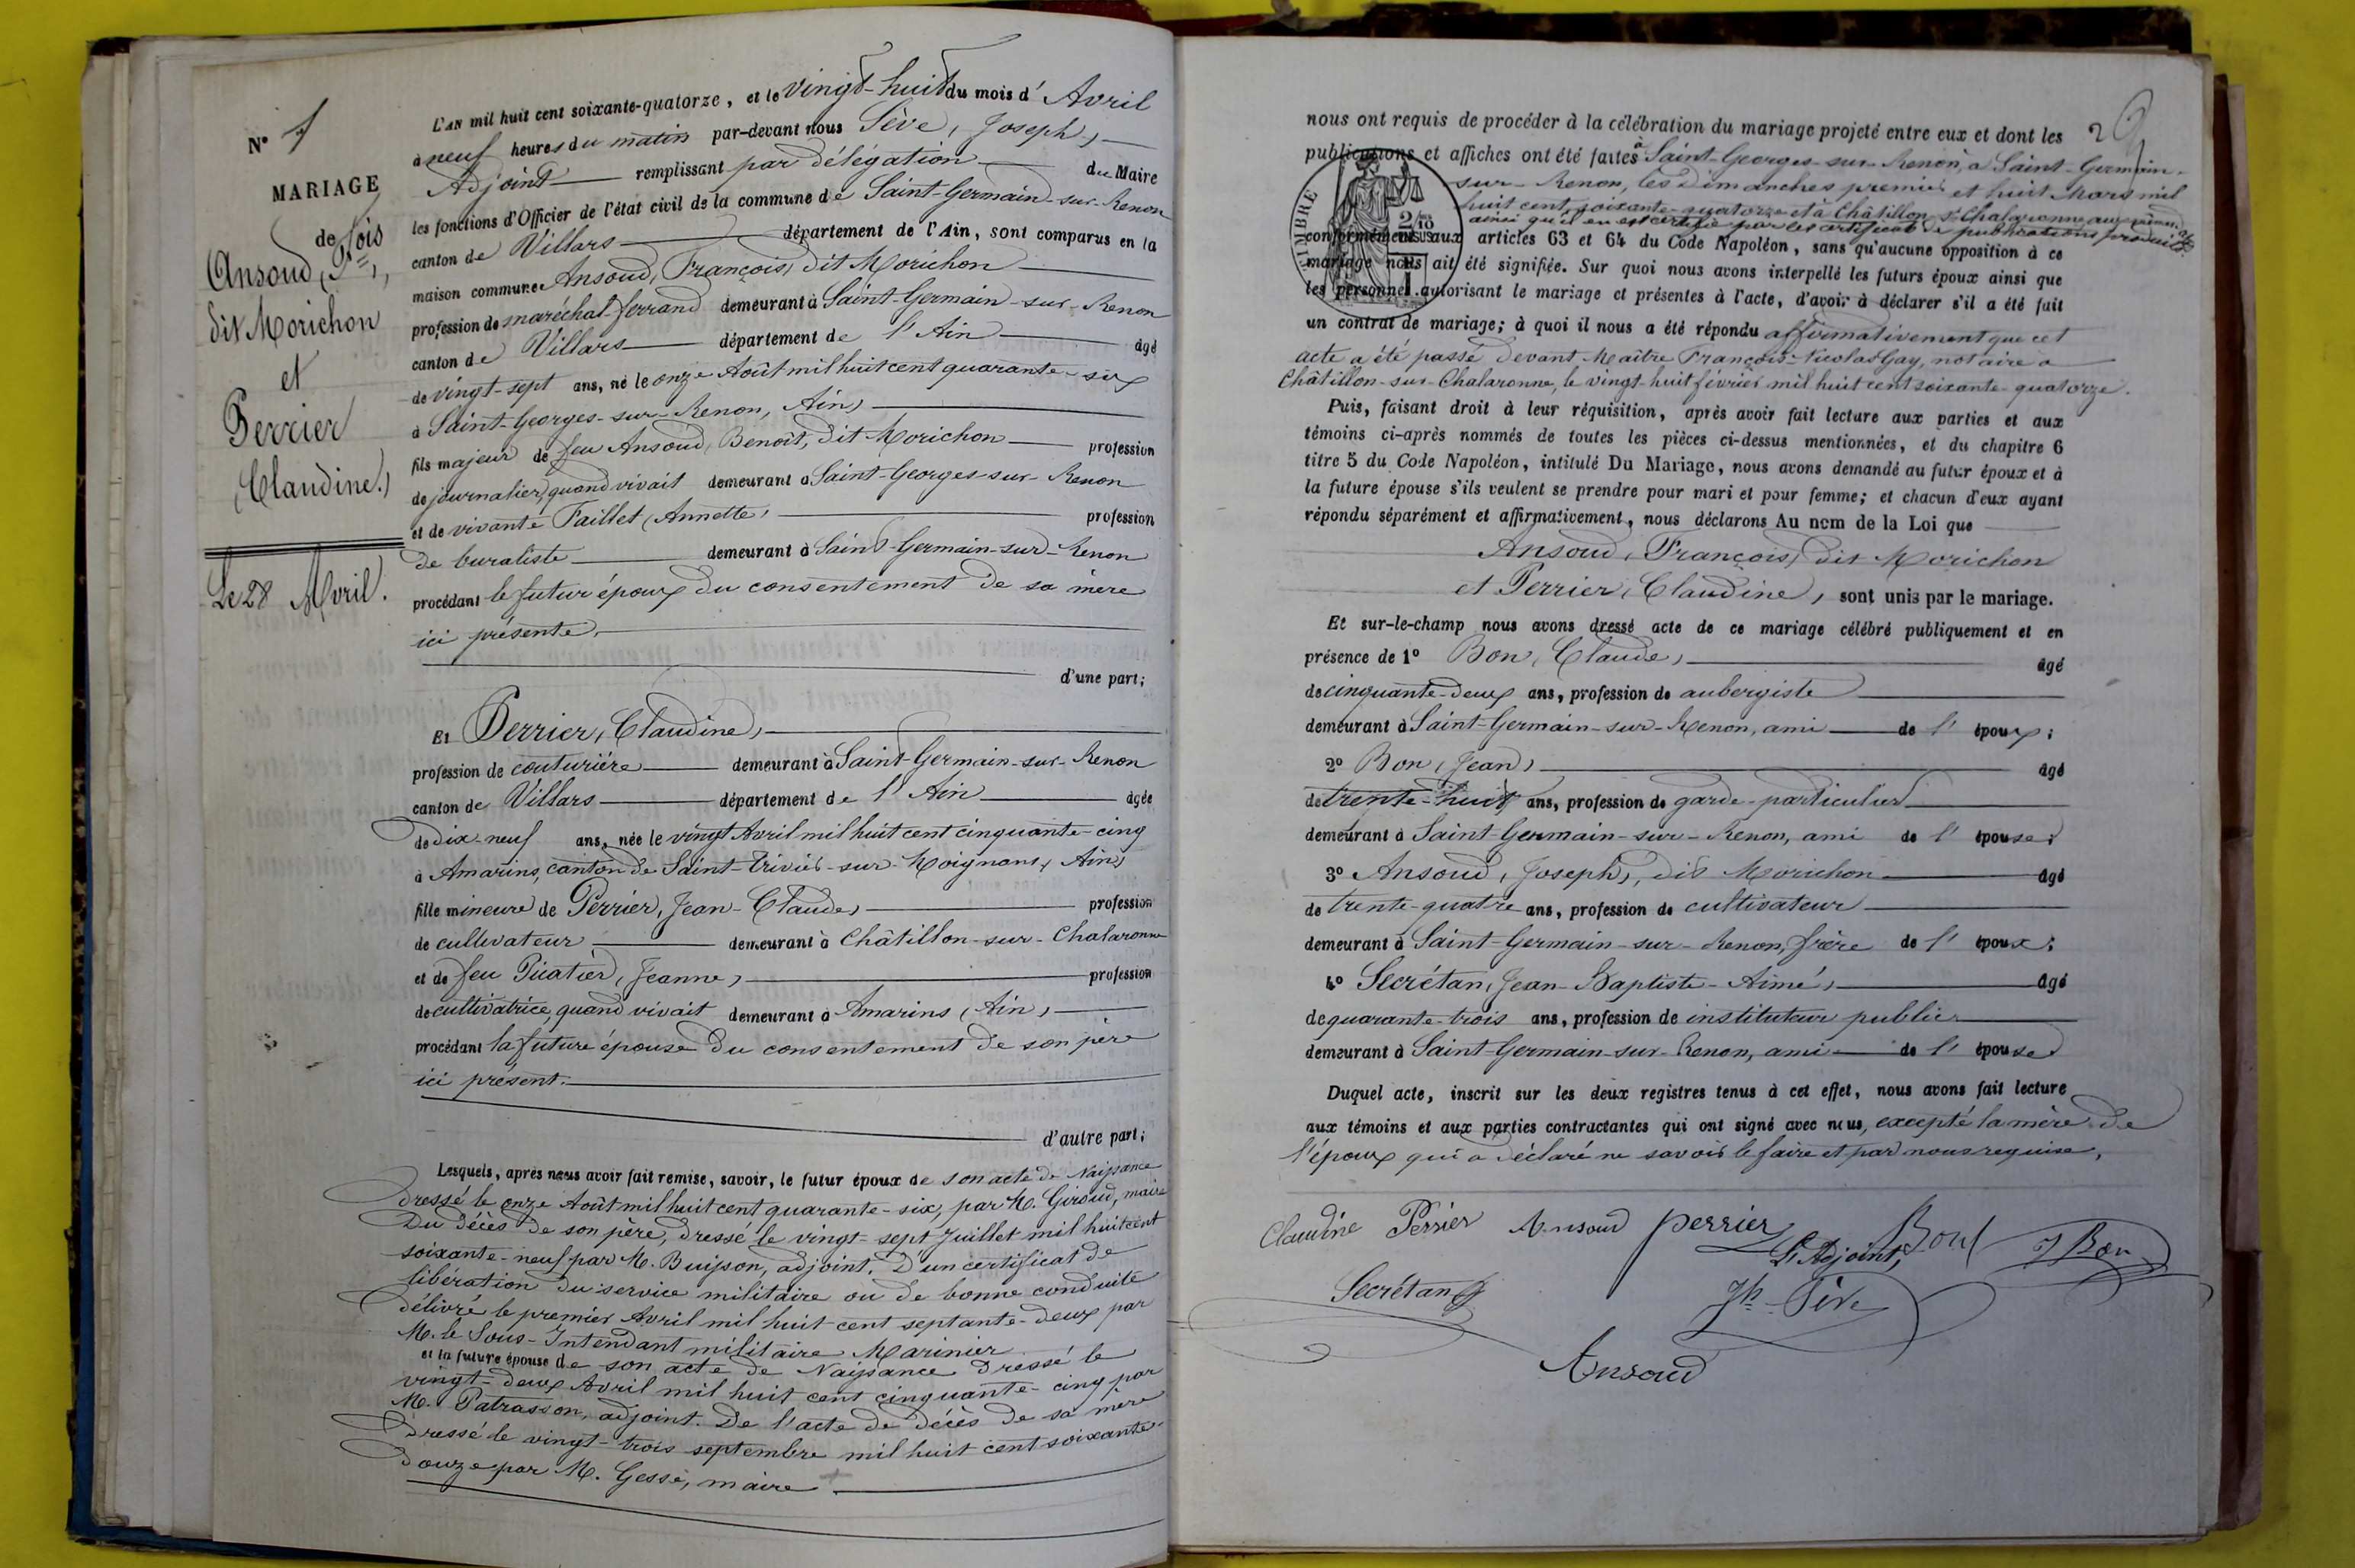 N° 1
MARIAGE
de
Ansoud, F.ois,
dit Morichon
et
Perrier
(Claudine)
Le 28 Avril.
L'AN mil huit cent soixante-quatorze, et le vingt-huit du mois d'Avril
à neuf heures du matin par-devant nous Sève, Joseph,
Adjoint remplissant par délégation du Maire
les fonctions d'Officier de l'état civil de la commune de Saint-Germain-sur-Renon
canton de Villars département de l'Ain, sont comparus en la
maison commune Ansoud, François, dit Morichon
profession de maréchal-ferrand demeurant à Saint-Germain-sur-Renon
canton de Villars département de l'Ain âgé
de vingt-sept ans, né le onze Août mil huit cent quarante-six
à Saint-Georges-sur-Renon, Ain,
fils majeur de feu Ansoud, Benoît, dit Morichon profession
de journalier, quand vivait demeurant à Saint-Georges-sur-Renon
et de vivante Faillet (Annette, profession
de buraliste demeurant à Saint-Germain-sur-Renon
procédant le futur époux du consentement de sa mère
ici présente,
d'une part;
Et Perrier, Claudine,
profession de couturière demeurant à Saint-Germain-sur-Renon
canton de Villars département de l'Ain âgée
de dix-neuf ans, née le vingt Avril mil huit cent cinquante-cinq
à Amarins, canton de Saint-Trivier-sur-Moignans, Ain,
fille mineure de Perrier, Jean-Claude, profession
de cultivateur demeurant à Châtillon-sur-Chalaronne
et de feu Jeanne, profession
de cultivatrice, quand vivait demeurant à Amarins (Ain),
procédant la future épouse du consentement de son père
ici présent.
d'autre part;
Lesquels, après nous avoir fait remise, savoir, le futur époux de son acte de Naissance
dressé le onze Août mil huit cent quarante-six, par M. Giroud, maire
Du décès de son père, dressé le vingt-sept Juillet mil huit cent
soixante-neuf par M. Buisson, adjoint. D'un certificat de
libération du service militaire ou de bonne conduite
délivré le premier Avril mil huit cent septante-deux par
M. le Sous-Intendant militaire Marinier
et la future épouse de son acte de Naissance dressé le
vingt-deux Avril mil huit cent cinquante-cinq par
M. Patrasson, adjoint. De l'acte de décès de sa mère
dressé le vingt-trois septembre mil huit cent soixante-
douze par M. Gesse, maire
29
nous ont requis de procéder à la célébration du mariage projeté entre eux et dont les
publications et affiches ont été faites à Saint-Georges-sur-Renon, à Saint-Germain-
sur-Renon, les dimanches premier et huit Mars mil
huit cent soixante-quatorze et à Châtillon s. Chalaronne aux
ainsi qu'il en est certifié par les certificats de publications produits
TIMBRE
2/10
EN SUS
conformément aux articles 63 et 64 du Code Napoléon, sans qu'aucune opposition à ce
mariage nous ait été signifiée. Sur quoi nous avons interpellé les futurs époux ainsi que
les personnes autorisant le mariage et présentes à l'acte, d'avoir à déclarer s'il a été fait
un contrat de mariage; à quoi il nous a été répondu affirmativement que cet
acte a été passé devant Maître François-Nicolas Gay, notaire à
Châtillon-sur-Chalaronne, le vingt-huit février mil huit cent soixante-quatorze.
Puis, faisant droit à leur réquisition, après avoir fait lecture aux parties et aux
témoins ci-après nommés de toutes les pièces ci-dessus mentionnées, et du chapitre 6
titre 5 du Code Napoléon, intitulé Du Mariage, nous avons demandé au futur époux et à
la future épouse s'ils veulent se prendre pour mari et pour femme; et chacun d'eux ayant
répondu séparément et affirmativement, nous déclarons Au nom de la Loi que
Ansoud, François, dit Morichon
et Perrier, Claudine, sont unis par le mariage.
Et sur-le-champ nous avons dressé acte de ce mariage célébré publiquement et en
présence de 1° Bon, Claude, âgé
de cinquante-deux ans, profession de aubergiste
demeurant à Saint-Germain-sur-Renon, ami de l'époux;
2° Bon, Jean, âgé
de trente-huit ans, profession de garde-particulier
demeurant à Saint-Germain-sur-Renon, ami de l'épouse;
3° Ansoud, Joseph, dit Morichon âgé
de trente-quatre ans, profession de cultivateur
demeurant à Saint-Germain-sur-Renon, frère de l'époux;
4° Secrétan, Jean-Baptiste-Aimé, âgé
de quarante-trois ans, profession de instituteur public
demeurant à Saint-Germain-sur-Renon, ami de l'épouse
Duquel acte, inscrit sur les deux registres tenus à cet effet, nous avons fait lecture
aux témoins et aux parties contractantes qui ont signé avec nous, excepté la mère de
l'époux qui a déclaré ne savoir le faire et par nous requise.
Claudine Perrier Ansoud perrier Bon J Bon
L'Adjoint,
Secrétan Jh Sève
Ansoud